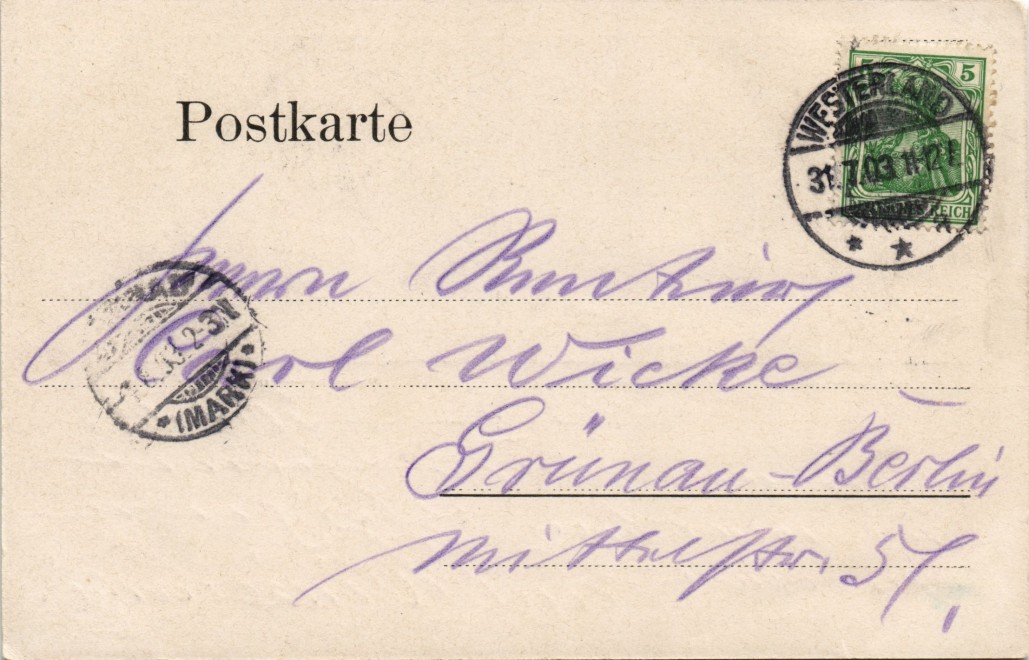 Postkarte
5
WESTERLAND
31.7.03 11-12
REICH
Herrn Rentier
Carl Wicke
Grünau-Berlin
Mittelstr.
2-3N
*(MARK)*